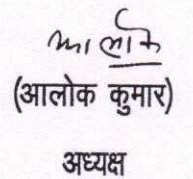 आलोक
(आलोक कुमार)
अध्यक्ष